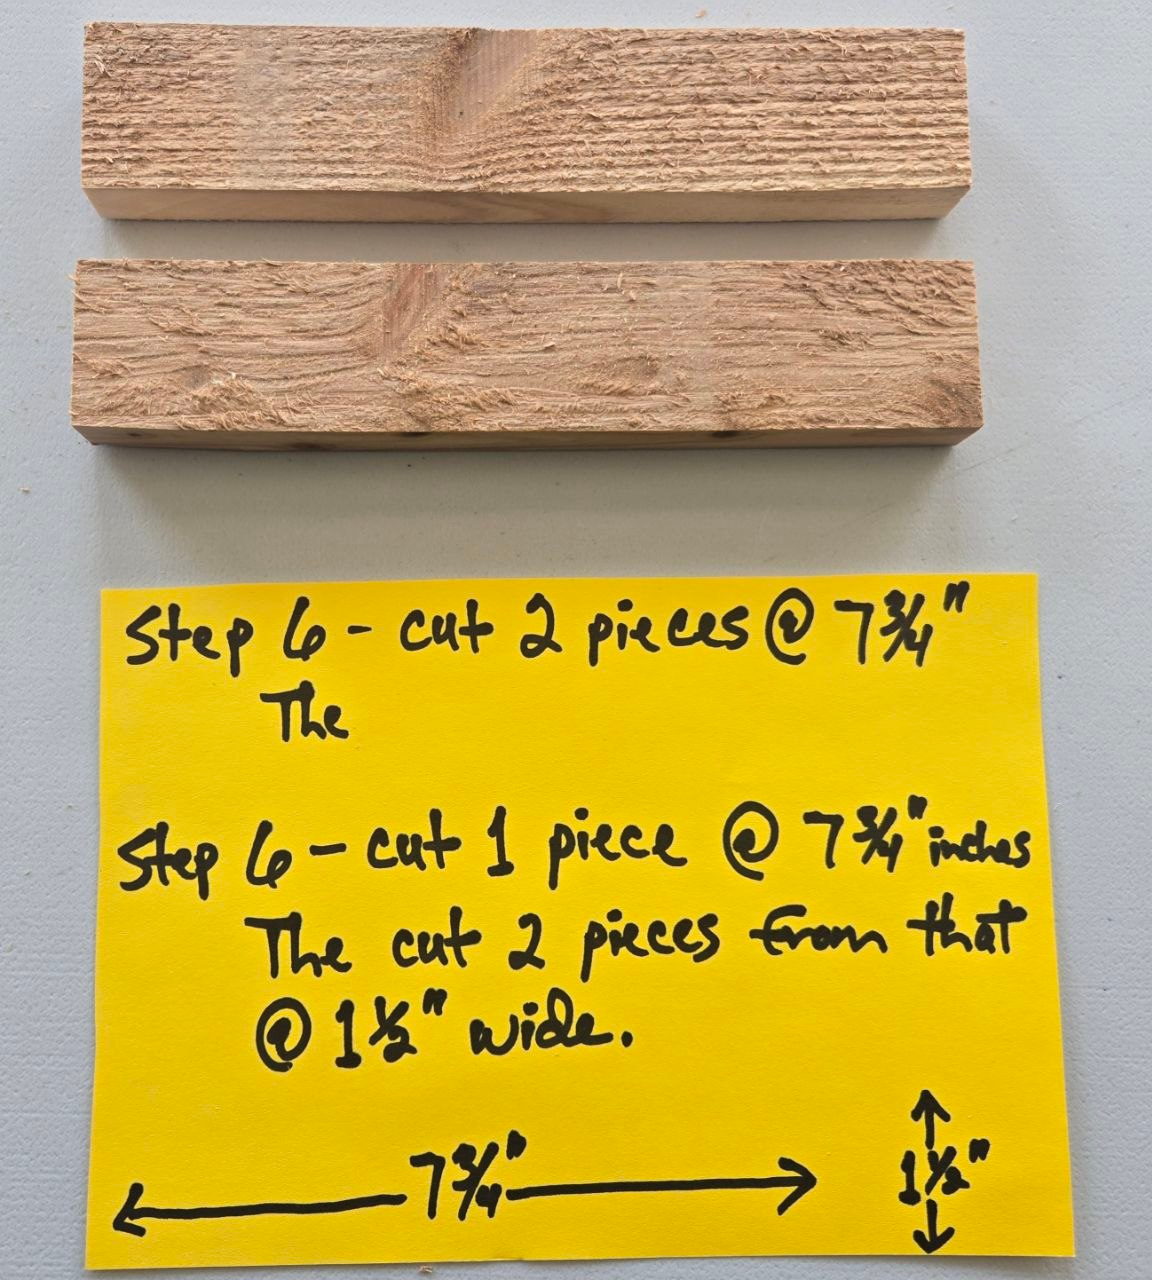 Step 6 - cut 2 pieces @ 7 3/4"
The
Step 6 - cut 1 piece @ 7 3/4" inches
The cut 2 pieces from that
@ 1 1/2" wide.
7 3/4"
1 1/2"